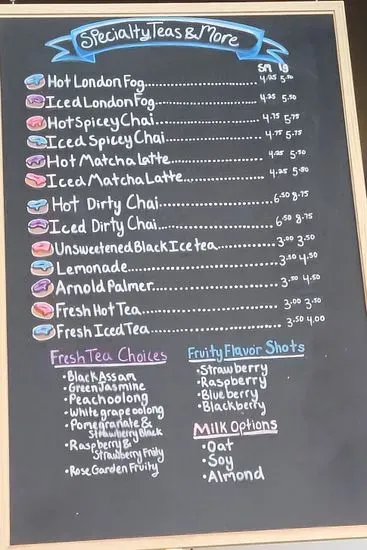 Specialty Teas & More
Sm lg
Hot London Fog 4.25 5.50
Iced London Fog 4.25 5.50
Hot Spicey Chai 4.75 5.75
Iced Spicey Chai 4.75 5.75
Hot Matcha Latte 4.25 5.50
Iced Matcha Latte 4.25 5.50
Hot Dirty Chai 6.50 8.75
Iced Dirty Chai 6.50 8.75
Unsweetened Black Ice tea 3.00 3.50
Lemonade 3.50 4.50
Arnold Palmer 3.50 4.50
Fresh Hot Tea 3.00 3.50
Fresh Iced Tea 3.50 4.00
Fresh Tea Choices
• Black Assam
• Green Jasmine
• Peach oolong
• White grape oolong
• Pomegranate &
Strawberry Black
• Raspberry &
Strawberry Fruity
• Rose Garden Fruity
Fruity Flavor Shots
• Strawberry
• Raspberry
• Blueberry
• Blackberry
Milk Options
• Oat
• Soy
• Almond